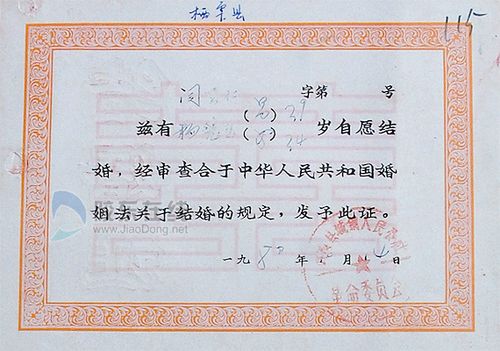 栖霞县
115
字第 号
闫
兹有 杨 (男) 39
(女) 34 岁自愿结
婚，经审查合于中华人民共和国婚
姻法关于结婚的规定，发予此证。
胶东在线
www.JiaoDong.net
一九80年 月14日
革命委员会